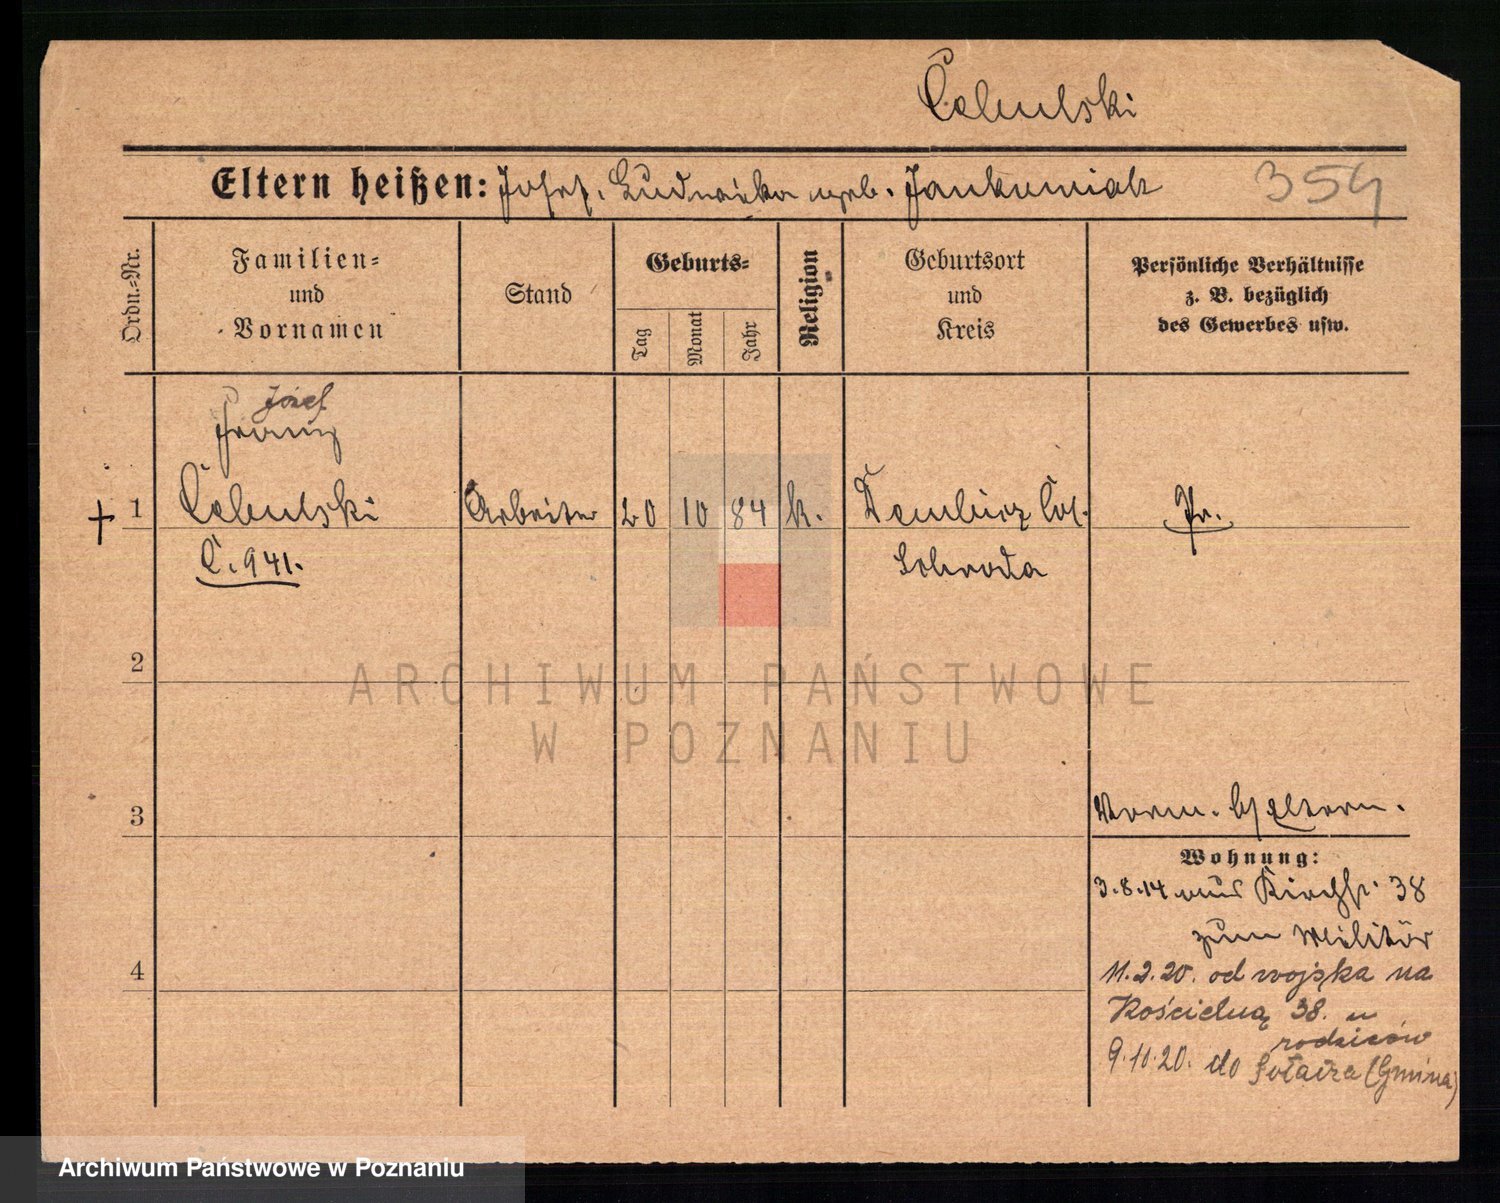 Cebulski
Eltern heißen: Josef, Ludwika geb. Jankowiak
354
Ordn.-Nr.
Familien-
und
Vornamen
Stand
Geburts-
Tag
Monat
Jahr
Religion
Geburtsort
und
Kreis
Persönliche Verhältnisse
z. B. bezüglich
des Gewerbes usw.
Józef
Franz
1 Cebulski Arbeiter 20 10 84 k. Dembicz Pr.
C. 941.
Schroda
2
ARCHIWUM PAŃSTWOWE
W POZNANIU
3
Eltern.
Wohnung:
3.8.14 aus Kirchstr. 38
zum Militär
4
11.2.20. od wojska na
Kościelną 38. u
rodziców
9.11.20. do Sołacza (Gmina)
Archiwum Państwowe w Poznaniu